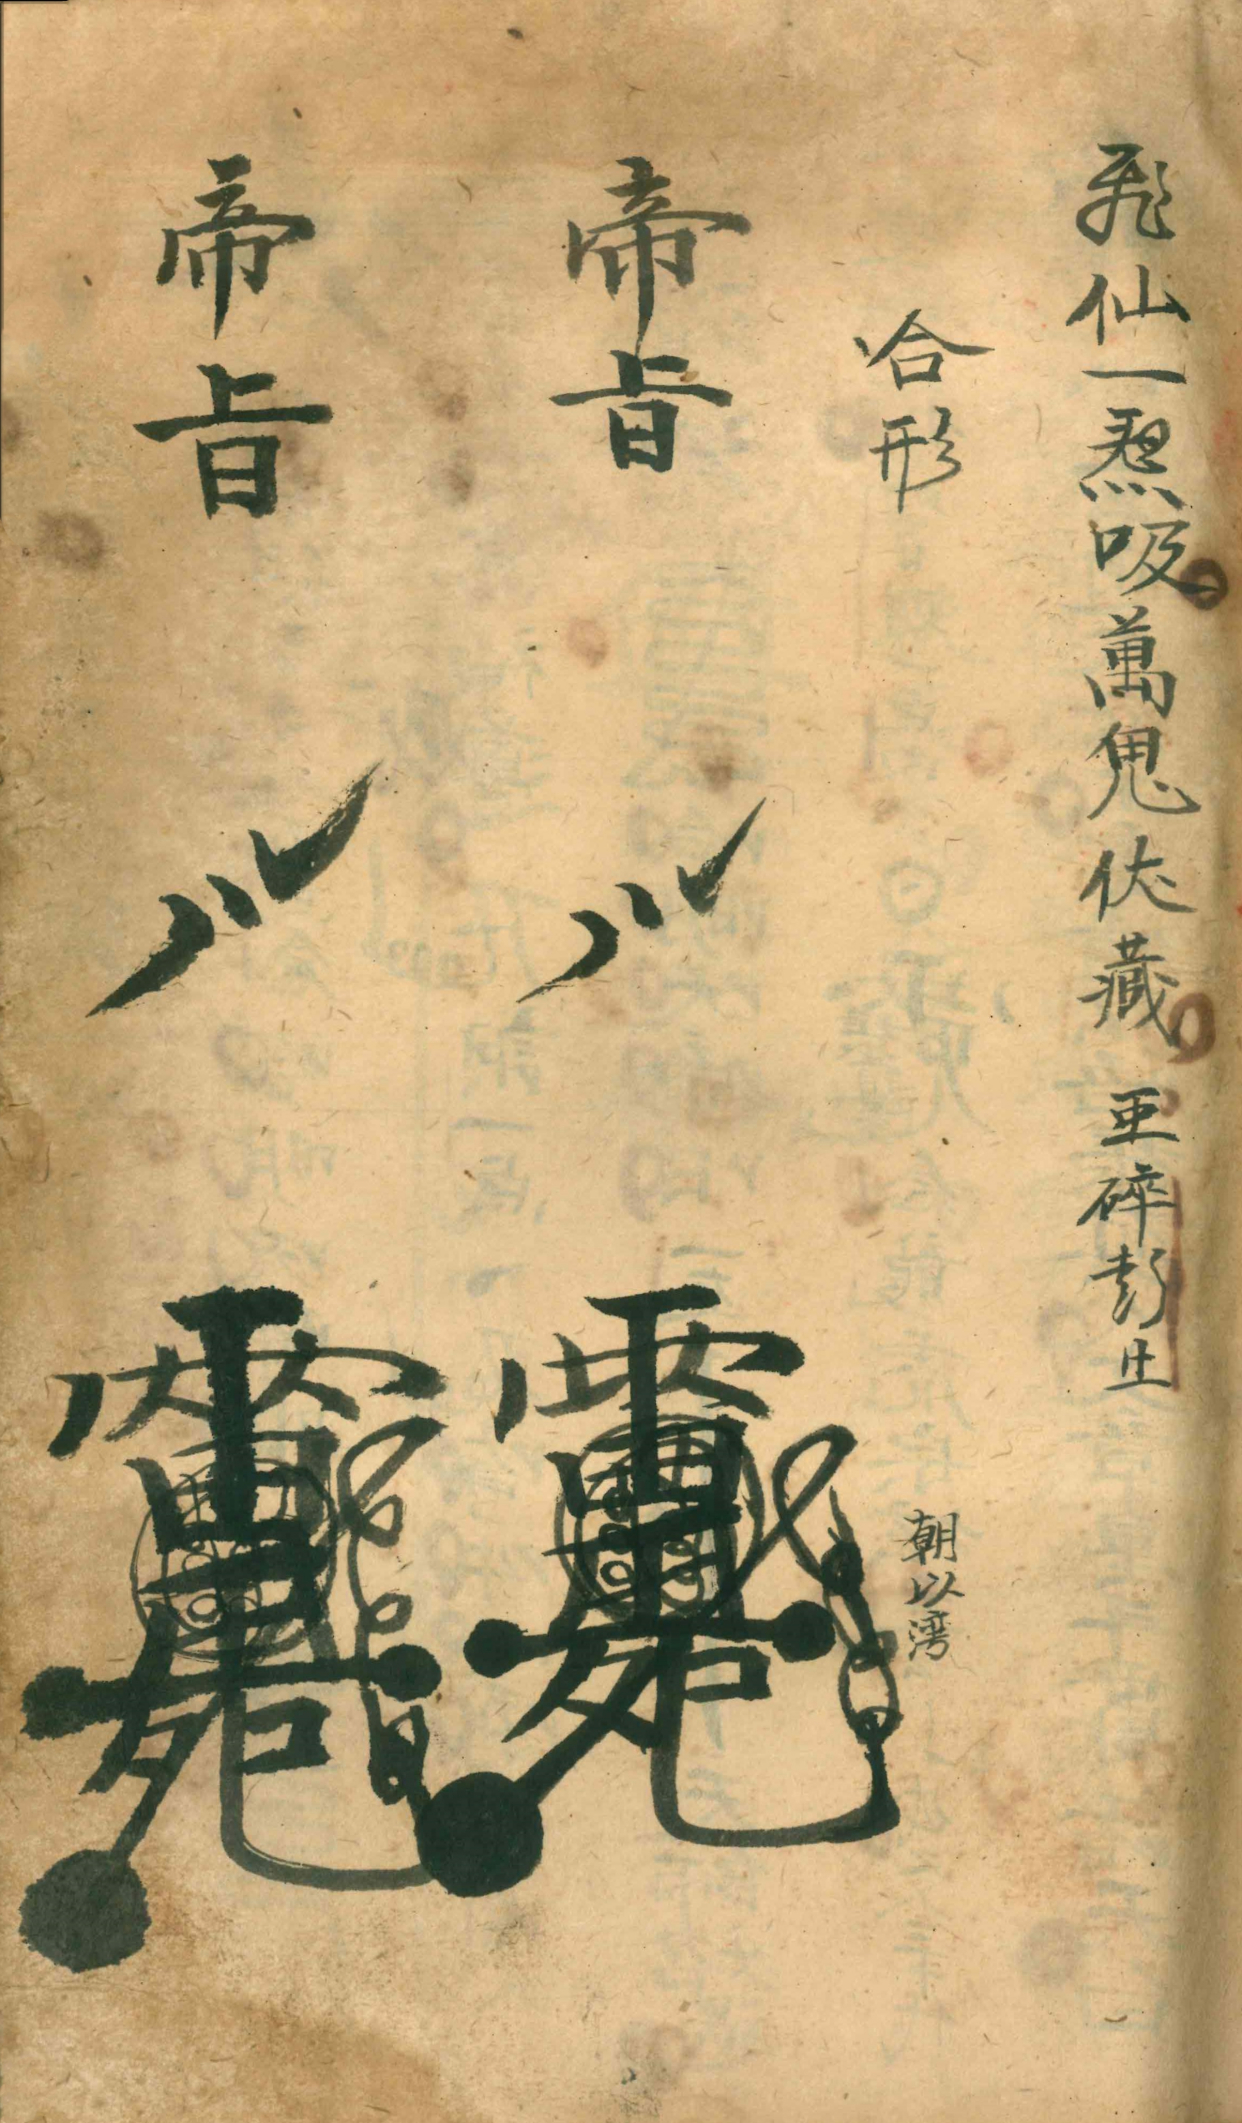 飛仙一炁吸萬鬼伏藏 亜碎彭
合形
朝以湾
帝旨
帝旨